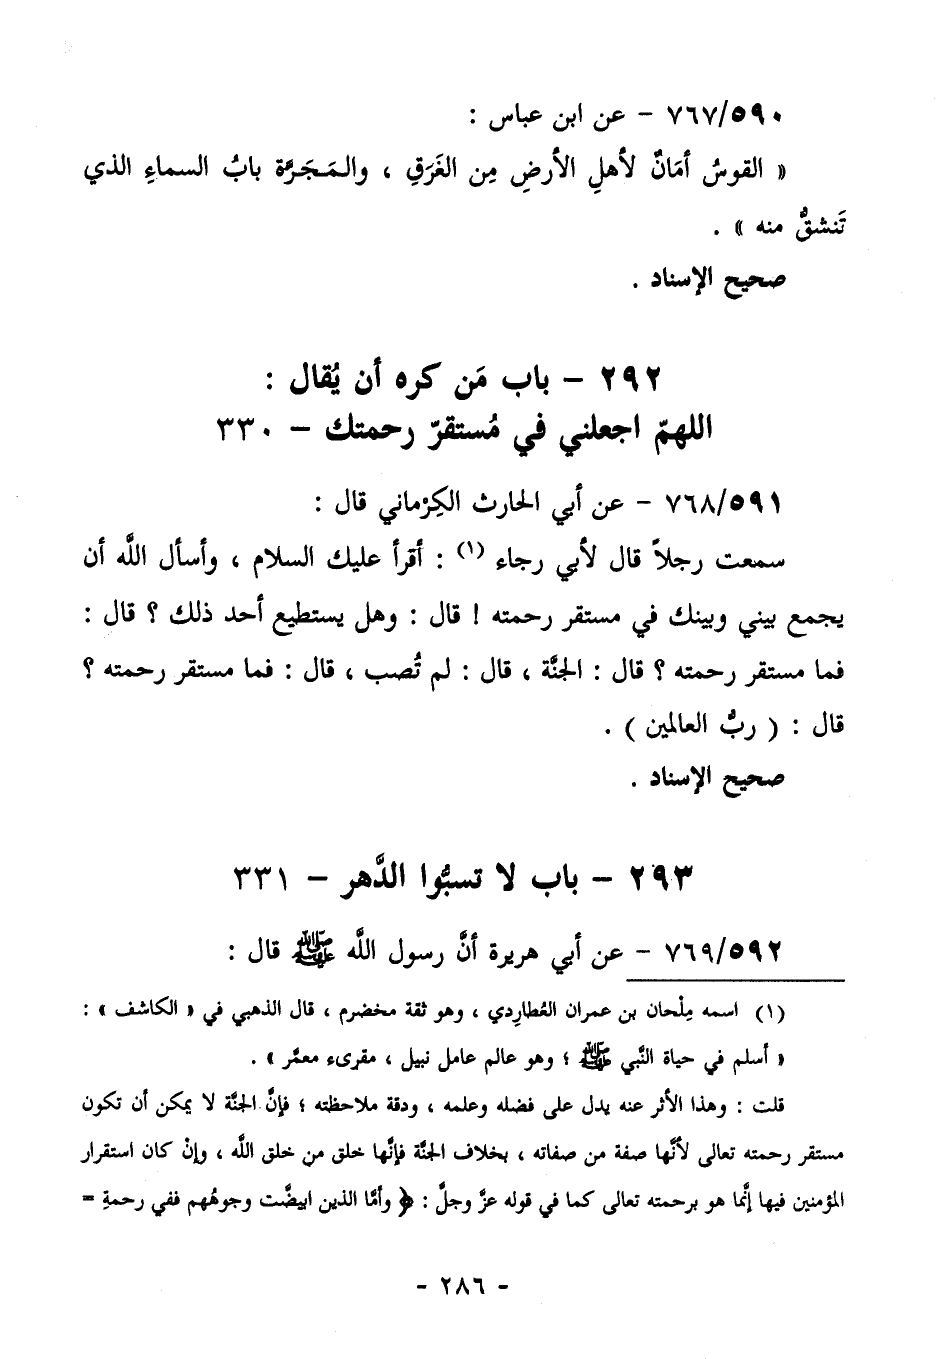 ٧٦٧/٥٩٠ – عن ابن عباس :
« القوسُ أمَانٌ لأهلِ الأرضِ مِن الغَرَقِ ، والمَجَرَّة بابُ السماءِ الذي
تَنشقُّ منه » .
صحيح الإسناد .
٢٩٢ – باب مَن كره أن يُقال :
اللهمّ اجعلني في مُستقرّ رحمتك – ٣٣٠
٧٦٨/٥٩١ – عن أبي الحارث الكِرْماني قال :
سمعت رجلاً قال لأبي رجاء (١) : أقرأ عليك السلام ، وأسأل اللَّه أن
يجمع بيني وبينك في مستقر رحمته ! قال : وهل يستطيع أحد ذلك ؟ قال :
فما مستقر رحمته ؟ قال : الجنَّة ، قال : لم تُصب ، قال : فما مستقر رحمته ؟
قال : ( ربُّ العالمين ) .
صحيح الإسناد .
٢٩٣ – باب لا تسبُّوا الدَّهر – ٣٣١
٧٦٩/٥٩٢ – عن أبي هريرة أنَّ رسول اللَّه ﷺ قال :
(١) اسمه مِلْحان بن عمران العُطارِدي ، وهو ثقة مخضرم ، قال الذهبي في « الكاشف » :
« أسلم في حياة النَّبي ﷺ ؛ وهو عالم عامل نبيل ، مقرىء معمَّر » .
قلت : وهذا الأثر عنه يدل على فضله وعلمه ، ودقة ملاحظته ؛ فإنَّ الجنَّة لا يمكن أن تكون
مستقر رحمته تعالى لأنَّها صفة من صفاته ، بخلاف الجنَّة فإنَّها خلق من خلق اللَّه ، وإنْ كان استقرار
المؤمنين فيها إنَّما هو برحمته تعالى كما في قوله عزَّ وجلَّ : ﴿ وأمَّا الذين ابيضَّت وجوهُهم ففي رحمةِ =
- ٢٨٦ -